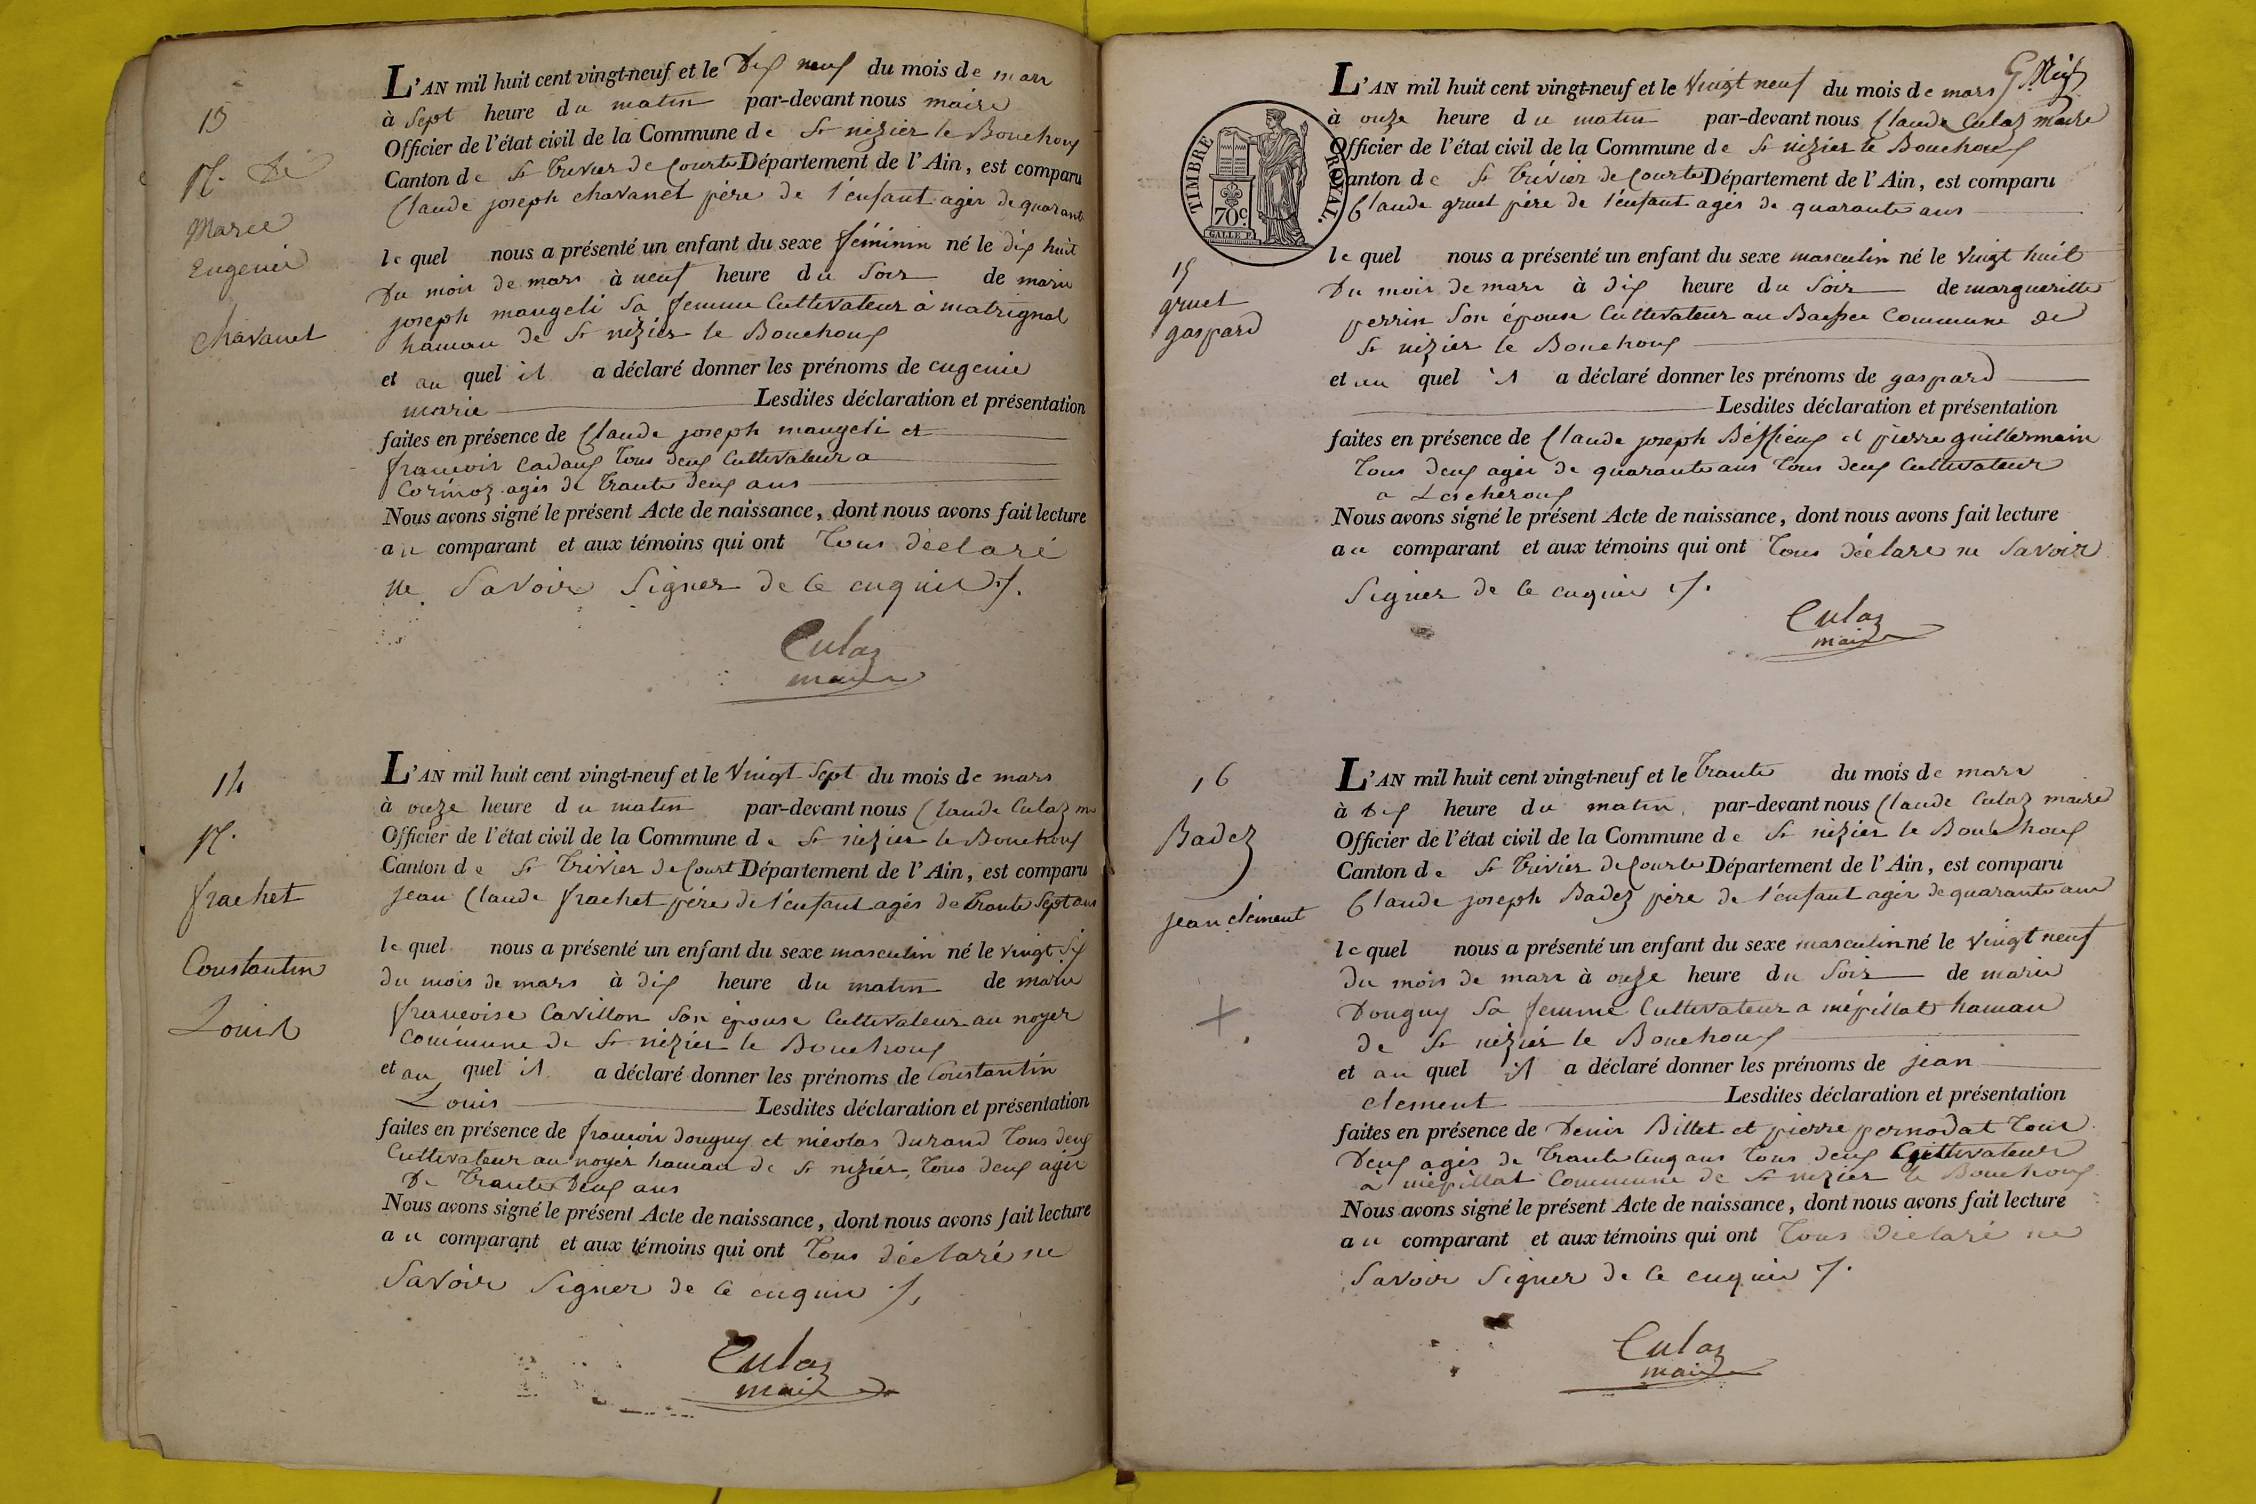 13
N.
Marie
Eugenie
Chavanet
L'AN mil huit cent vingt-neuf et le Dix neuf du mois de mars
à Sept heure du matin par-devant nous maire
Officier de l'état civil de la Commune de St nizier le Bouchoux
Canton de St Trivier de Courte Département de l'Ain, est comparu
Claude joseph chavanet père de l'enfant agés de quarante
lequel nous a présenté un enfant du sexe féminin né le dix huit
Du mois de mars à neuf heure du Soir de marie
joseph maugeli Sa femme Cultivateur à matrignal
hamau de St nizier le Bouchoux
et au quel il a déclaré donner les prénoms de eugenie
marie Lesdites déclaration et présentation
faites en présence de Claude joseph maugeli et
francois Cadaux Tous deux Cultivateur a
Cormoz agés de Trante deux ans
Nous avons signé le présent Acte de naissance, dont nous avons fait lecture
au comparant et aux témoins qui ont Tous déclaré
ne Savoir Signer de ce enquis ./.
Culaz
maire
14
N.
frachet
Constantin
Louis
L'AN mil huit cent vingt-neuf et le Vingt Sept du mois de mars
à onze heure du matin par-devant nous Claude Culaz m
Officier de l'état civil de la Commune de St nizier le Bouchoux
Canton de St Trivier de Court Département de l'Ain, est comparu
jean Claude frachet père de l'enfant agés de Trante Sept ans
lequel nous a présenté un enfant du sexe masculin né le vingt Six
du mois de mars à dix heure du matin de marie
francoise Cavillon Son épouse Cultivateur au noyer
Commune de St nizier le Bouchoux
et au quel il a déclaré donner les prénoms de Constantin
Louis Lesdites déclaration et présentation
faites en présence de francois douguy et nicolas durand Tous deux
Cultivateur au noyer hamau de St nizier, Tous deux agés
De Trante Deux ans
Nous avons signé le présent Acte de naissance, dont nous avons fait lecture
au comparant et aux témoins qui ont Tous déclaré ne
Savoir Signer de ce enquis ./.
Culaz
maire
TIMBRE ROYAL.
70c
GALLE F.
15
gruet
gaspard
L'AN mil huit cent vingt-neuf et le Vingt neuf du mois de mars
à onze heure du matin par-devant nous Claude Culaz maire
Officier de l'état civil de la Commune de St nizier le Bouchoux
Canton de St Trivier de Courte Département de l'Ain, est comparu
Claude gruet père de l'enfant agés de quarante ans
lequel nous a présenté un enfant du sexe masculin né le Vingt huit
Du mois de mars à dix heure du Soir de margueritte
perrin Son épouse Cultivateur au Commune de
St nizier le Bouchoux
et au quel il a déclaré donner les prénoms de gaspard
Lesdites déclaration et présentation
faites en présence de Claude joseph et pierre guillermain
Tous deux agés de quarante ans Tous deux Cultivateur
a Lescheroux
Nous avons signé le présent Acte de naissance, dont nous avons fait lecture
au comparant et aux témoins qui ont Tous déclare ne Savoir
Signer de ce enquis ./.
Culaz
maire
16
Badez
jean clément
L'AN mil huit cent vingt-neuf et le Trante du mois de mars
à Dix heure du matin par-devant nous Claude Culaz maire
Officier de l'état civil de la Commune de St nizier le Bouchoux
Canton de St Trivier de Courte Département de l'Ain, est comparu
Claude joseph Badez père de l'enfant agés de quarante ans
lequel nous a présenté un enfant du sexe masculin né le Vingt neuf
du mois de mars à onze heure du Soir de marie
Douguy Sa femme Cultivateur a mépillat hamau
de St nizier le Bouchoux
et au quel il a déclaré donner les prénoms de jean
clement Lesdites déclaration et présentation
faites en présence de Denis Billet et pierre pernodat Tous
Deux agés de Trante Cinq ans Tous deux Cultivateur
a mépillat Commune de St nizier le Bouchoux
Nous avons signé le présent Acte de naissance, dont nous avons fait lecture
au comparant et aux témoins qui ont Tous déclaré ne
Savoir Signer de ce enquis ./.
Culaz
maire